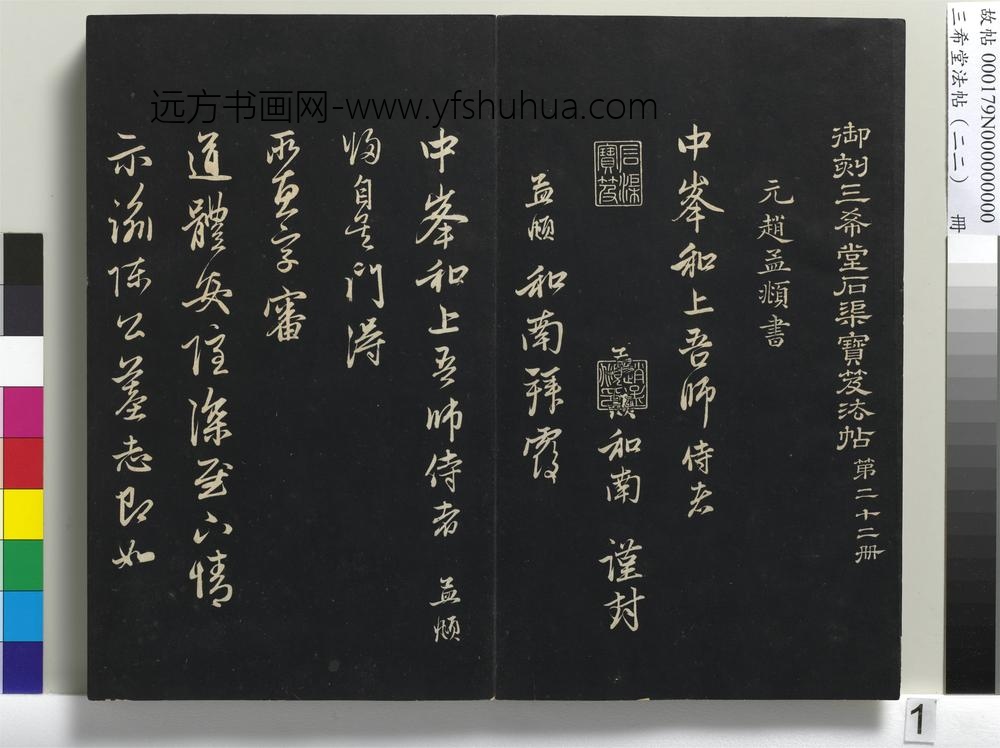 故帖 000179N000000000
三希堂法帖（二二） 冊
远方书画网-www.yfshuhua.com
御刻三希堂石渠寶笈法帖 第二十二册
元趙孟頫書
中峯和上吾師侍者
孟頫和南 謹封
石渠寶笈
孟頫和南拜覆
中峯和上吾師侍者 孟頫
自吳門得
所惠字審
道體安隱深慰下情
示諭陳公墓志即如
1